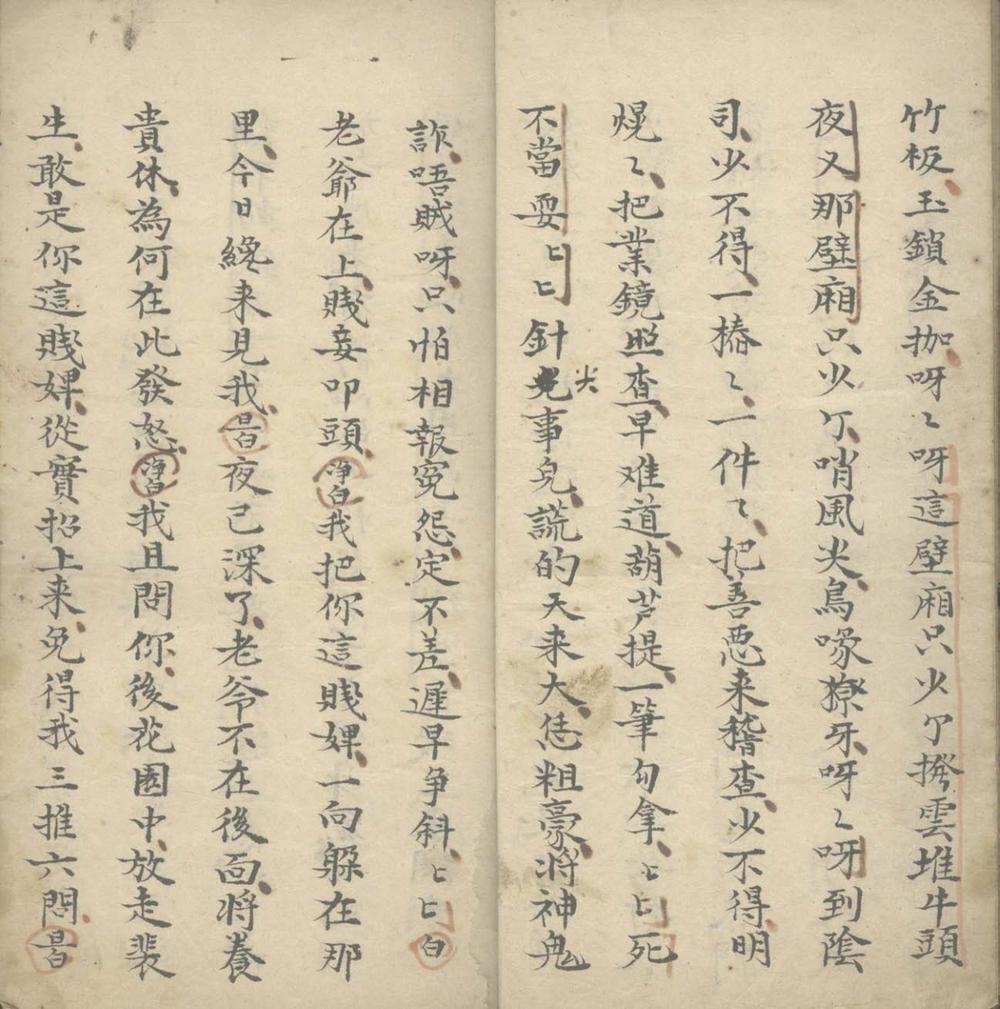 竹板、玉鎖金枷、呀〻呀這壁廂只少个撥雲堆牛頭
夜叉那壁廂只少个、哨風尖鳥喙獠牙、呀〻呀到陰
司、少不得、一樁〻、一件〻、把善惡来稽查、少不得、明
熀〻、把業鏡照查、早难道、葫芦提、一筆勾拿、匕匕死
不當耍匕匕針尖事皃、謊的天来大、恁粗豪、将神鬼
詐、唔賊呀、只怕相報寃怨、定不差、遲早争斜、匕匕白
老爺在上、賤妾叩頭、净白我把你這賤婢、一向躱在那
里、今日纔来見我、旦白夜已深了、老爷不在後面、将養
貴休、為何在此發怒、净白我且問你、後花園中、放走裴
生、敢是你這賤婢、從實招上来、免得我三推六問、旦白